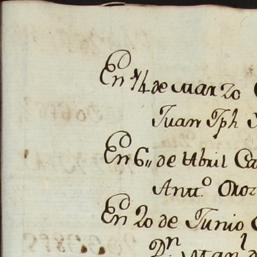 En 14 de Marzo
Juan Jph
En 6,, de Abril Ca
Antt.º Oroz
En 20 de Junio
Dn Man.l